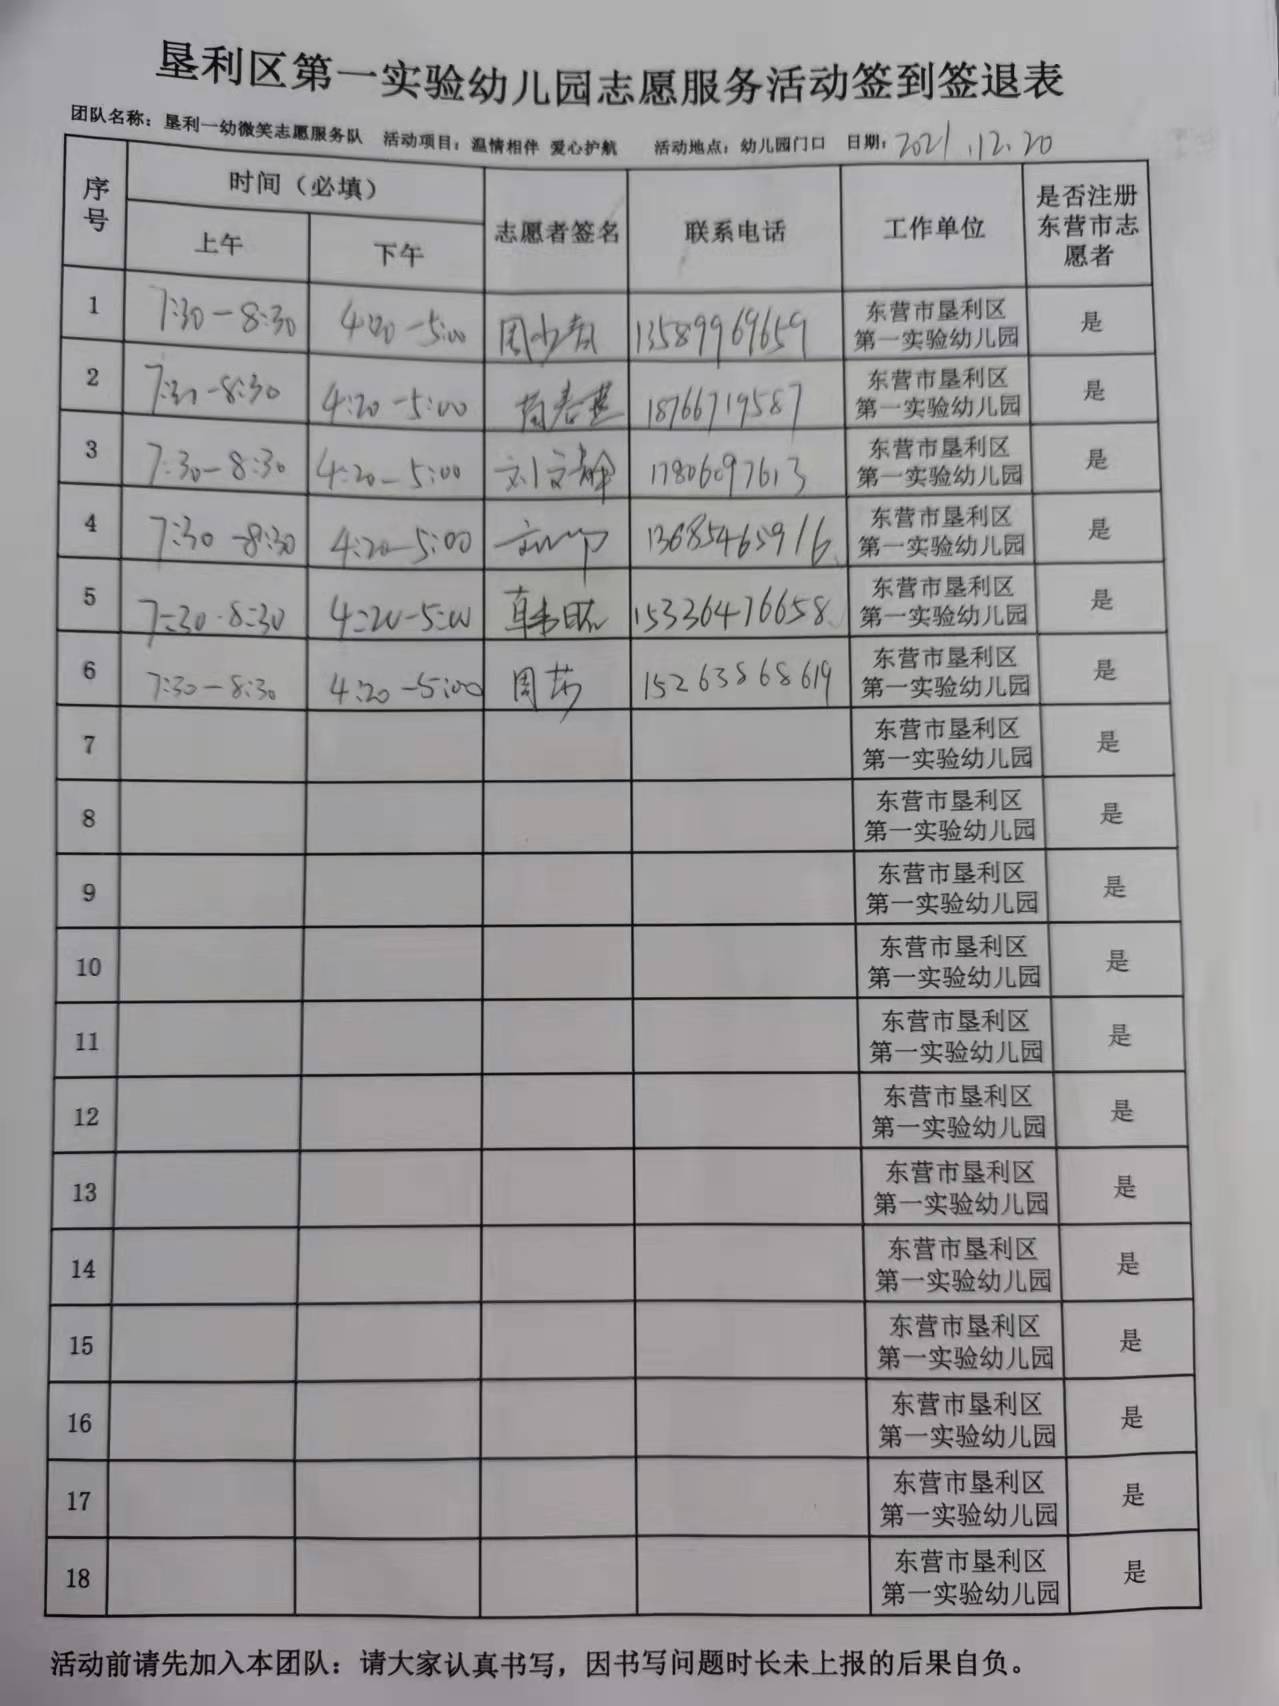 垦利区第一实验幼儿园志愿服务活动签到签退表
团队名称：垦利一幼微笑志愿服务队 活动项目：温情相伴 爱心护航 活动地点：幼儿园门口 日期：2021.12.20
序号 时间（必填） 志愿者签名 联系电话 工作单位 是否注册东营市志愿者
上午 下午
1 7:30-8:30 4:20-5:00 13589969659 东营市垦利区第一实验幼儿园 是
2 7:30-8:30 4:20-5:00 18766719587 东营市垦利区第一实验幼儿园 是
3 7:30-8:30 4:20-5:00 刘文静 17806097613 东营市垦利区第一实验幼儿园 是
4 7:30-8:30 4:20-5:00 13685465916 东营市垦利区第一实验幼儿园 是
5 7:30-8:30 4:20-5:00 15336476658 东营市垦利区第一实验幼儿园 是
6 7:30-8:30 4:20-5:00 周莎 15263868619 东营市垦利区第一实验幼儿园 是
7 东营市垦利区第一实验幼儿园 是
8 东营市垦利区第一实验幼儿园 是
9 东营市垦利区第一实验幼儿园 是
10 东营市垦利区第一实验幼儿园 是
11 东营市垦利区第一实验幼儿园 是
12 东营市垦利区第一实验幼儿园 是
13 东营市垦利区第一实验幼儿园 是
14 东营市垦利区第一实验幼儿园 是
15 东营市垦利区第一实验幼儿园 是
16 东营市垦利区第一实验幼儿园 是
17 东营市垦利区第一实验幼儿园 是
18 东营市垦利区第一实验幼儿园 是
活动前请先加入本团队：请大家认真书写，因书写问题时长未上报的后果自负。